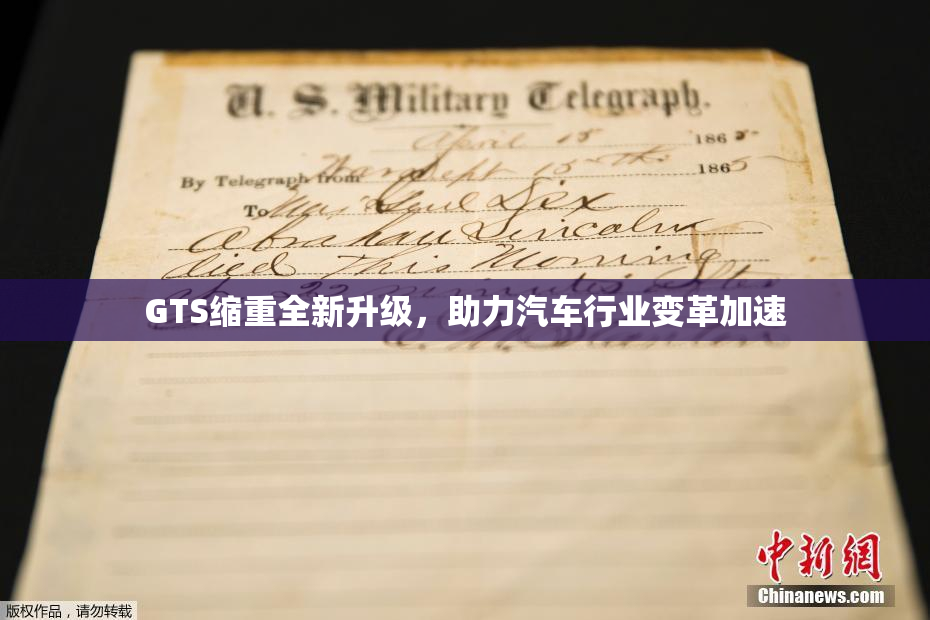 U. S. Military Telegraph.
April 15 1865
By Telegraph from War Dept 15th 1865
To Maj Genl Dix
Abraham Lincoln
died This Morning
at 22 minutes after
GTS缩重全新升级，助力汽车行业变革加速
E. M. Stanton
中新网
Chinanews.com
版权作品，请勿转载